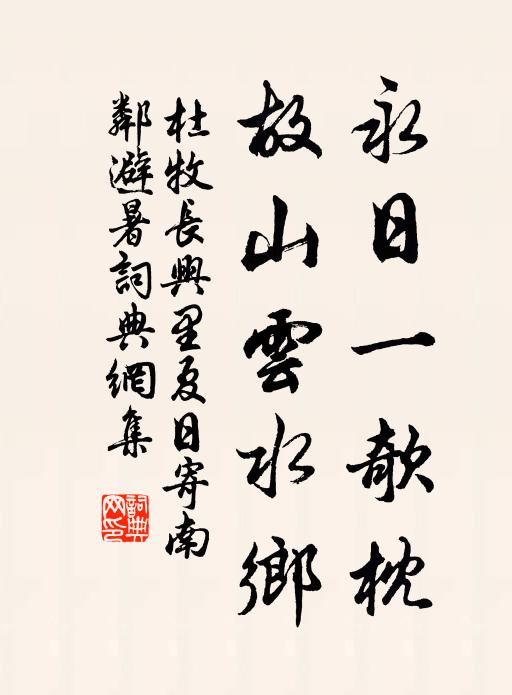 永日一欹枕
故山雲水鄉
杜牧長興里夏日寄南
鄰避暑詞典網集
詞典
网印